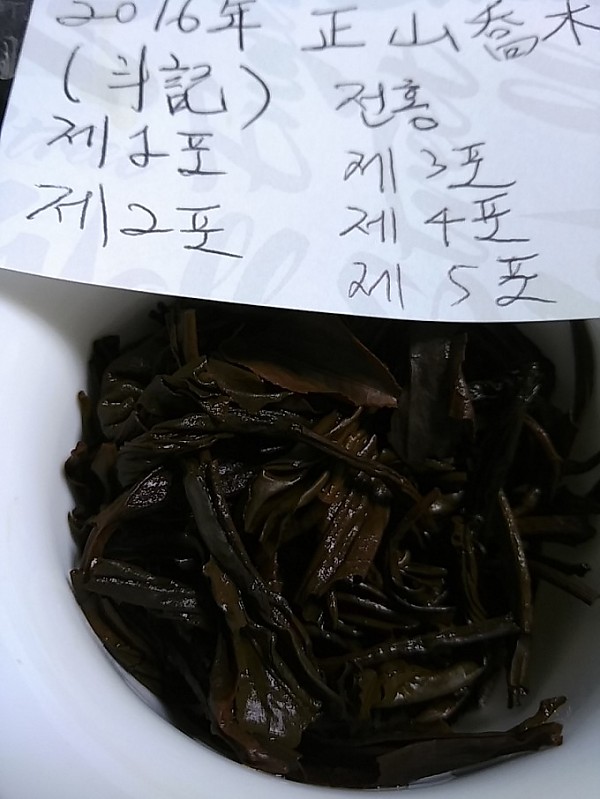 2016年 正山喬木
(斗記) 전홍
제1포
제2포
제3포
제4포
제5포